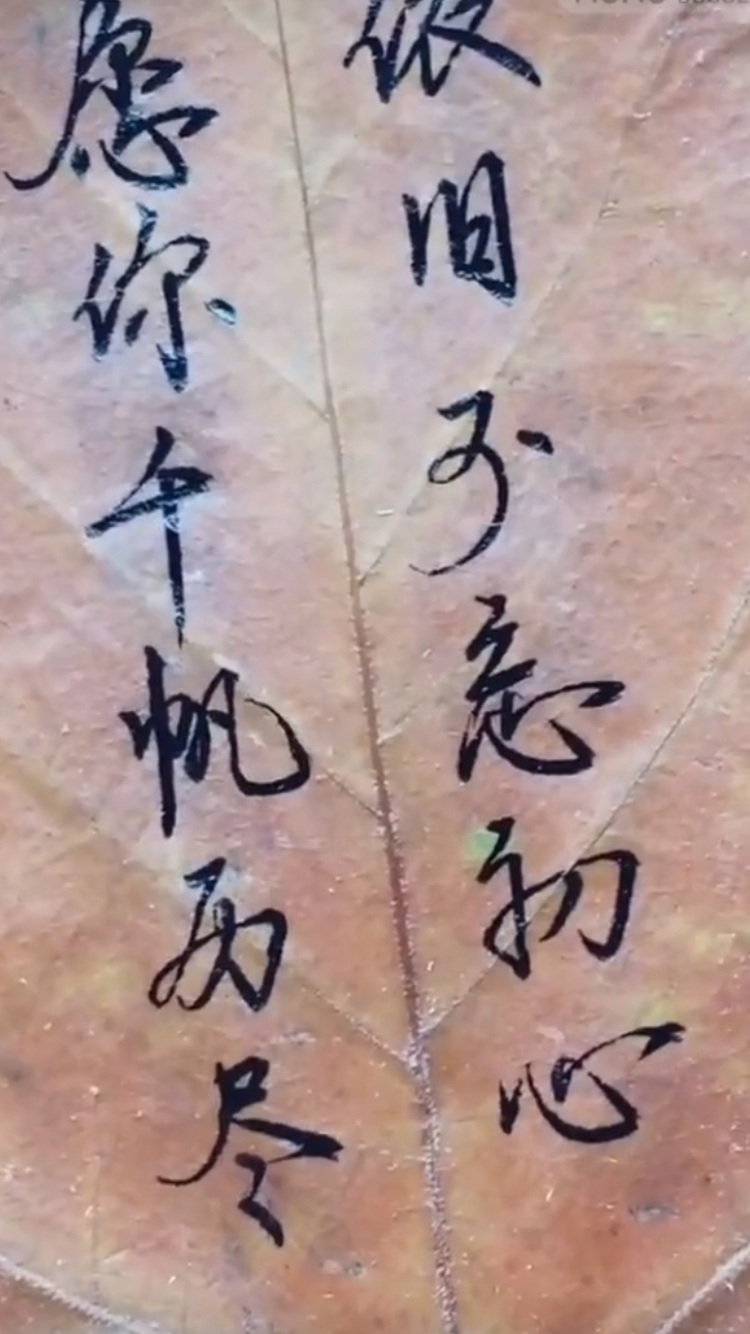 愿你千帆历尽
依旧不忘初心